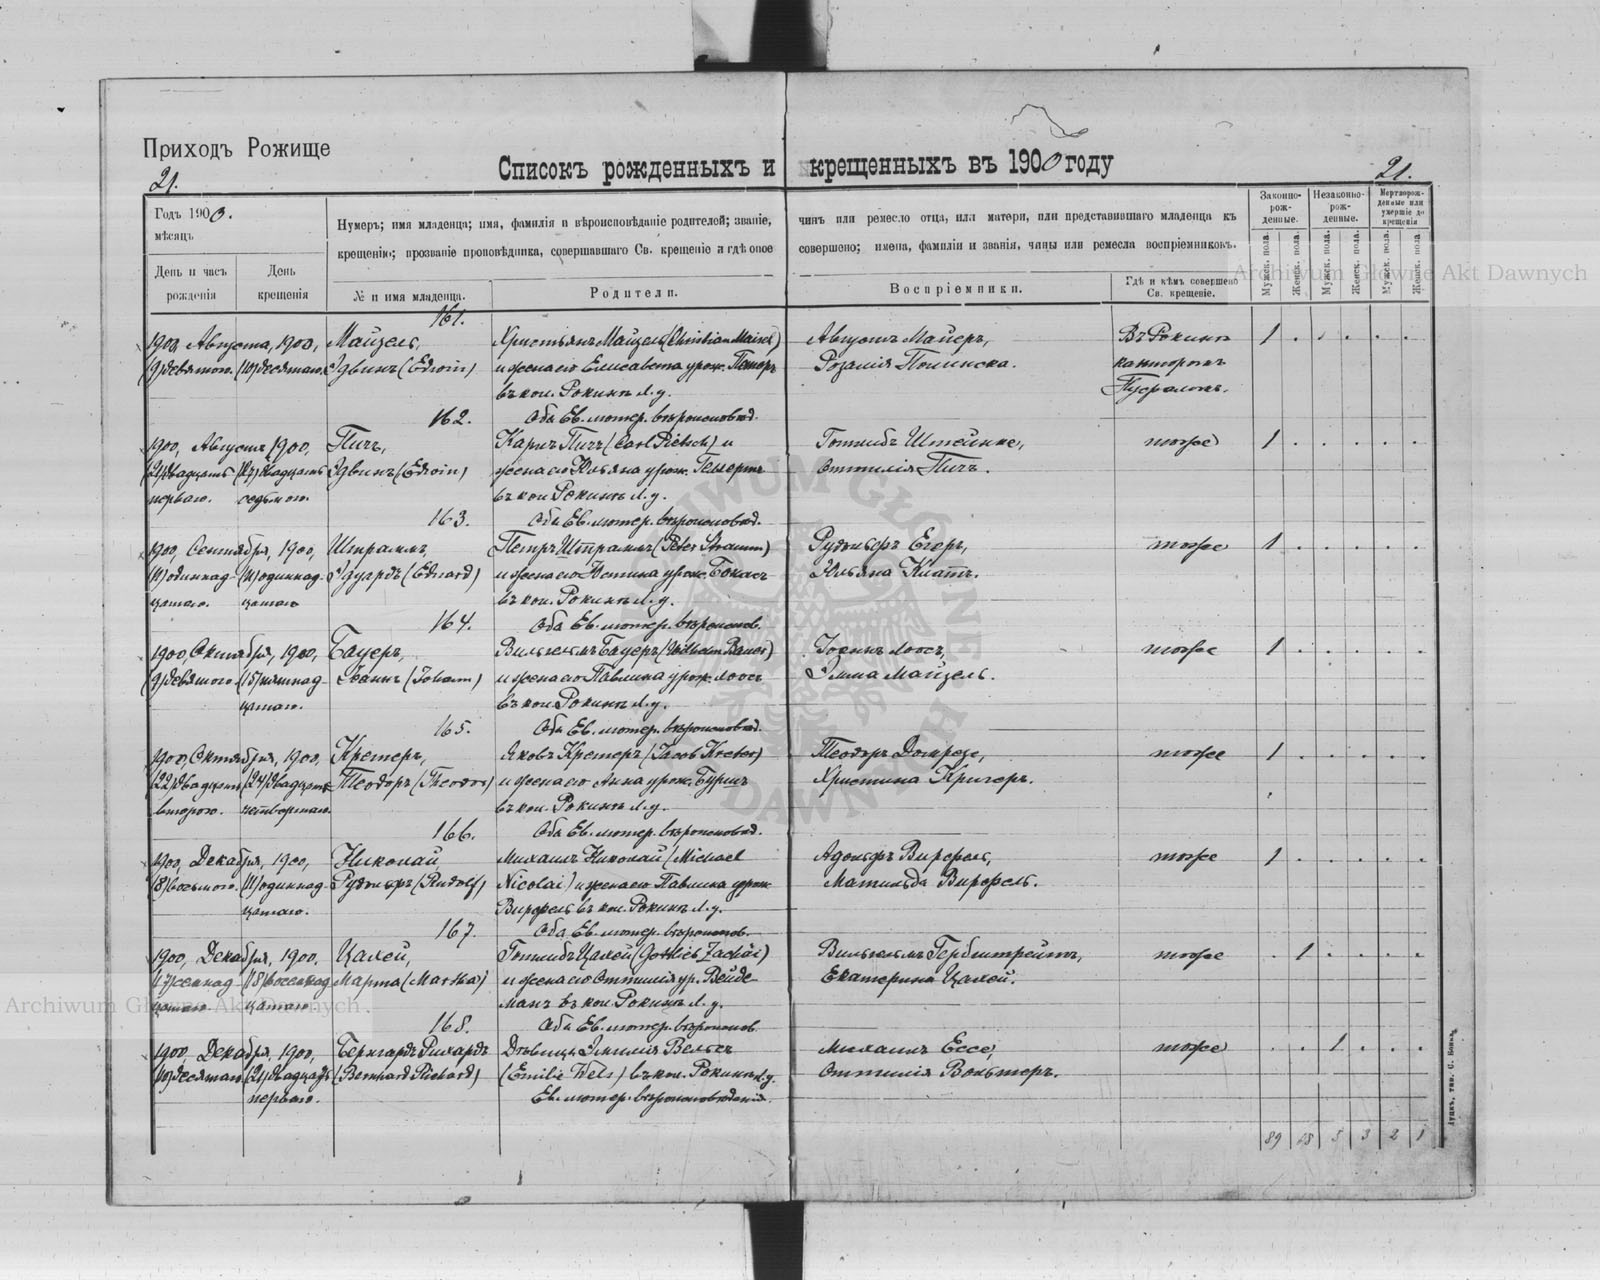 Приходъ Рожище
Списокъ рожденныхъ и крещенныхъ въ 1900 году
21.
21.
Годъ 1900.
мѣсяцъ
День и часъ рожденія
День крещенія
Нумеръ; имя младенца; имя, фамилія и вѣроисповѣданіе родителей; званіе, чинъ или ремесло отца, или матери, или представившаго младенца къ
крещенію; прозваніе проповѣдника, совершавшаго Св. крещеніе и гдѣ оное совершено; имена, фамиліи и званія, чины или ремесла воспріемниковъ.
№ и имя младенца.
Родители.
Воспріемники.
Гдѣ и кѣмъ совершено Св. крещеніе.
Законно-рож-денные.
Незаконно-рож-денные.
Мертворож-денные или умершіе до крещенія
Мужск. пола.
Женск. пола.
Мужск. пола.
Женск. пола.
Мужск. пола
Женск. пола
161.
1900, Августа, 1900, Майзель, Христьянъ Майзель (Christian Maisel) Августъ Майеръ, Въ Рокини 1 . . . . .
(9) девятого. (10) десятаго. Эдвинъ (Edwin) и жена его Елисавета урож. Розалія кантором
въ кол. Рокини Л. у.
162. Оба Ев. лютер. вѣроисповѣд.
1900, Августа 1900, Пичъ, Карлъ Пичъ (Carl Pietsch) и Готлибъ Штейнке, тоже 1 . . . . .
(21) двадцать (27) двадцать Эдвинъ (Edwin) жена его Юльяна урож. Геллертъ Оттилія Пичъ.
перваго. седьмого. въ кол. Рокини Л. у.
163. Оба Ев. лютер. вѣроисповѣд.
1900, Сентября, 1900, Штраммъ, Петръ Штраммъ (Peter Stramm) Рудольфъ Егеръ, тоже 1 . . . . .
(11) одиннад- (11) одиннад- Эдуардъ (Eduard) и жена его Юстина урож. Юльяна
цатаго. цатаго въ кол. Рокини Л. у.
164. Оба Ев. лютер. вѣроиспов.
1900, Октября, 1900, Бауеръ, Вильгельмъ Бауеръ (Wilhelm Bauer) тоже 1 . . . . .
(9) девятого. (15) пятнад- Іоганнъ (Johann) и жена его Павлина урож. Лоосъ Эмма Майзель.
цатаго. въ кол. Рокини Л. у.
165. Оба Ев. лютер. вѣроисповѣд.
1900, Октября, 1900, Кретеръ, Яковъ Кретеръ (Jacob Kreter) Теодоръ тоже 1 . . . . .
(22) двадцать (24) двадцать Теодоръ (Theodor) и жена его Анна урож. Христина Кригеръ.
второго. четвертаго. въ кол. Рокини Л. у.
166. Оба Ев. лютер. вѣроисповѣд.
1900, Декабря, 1900, Николай Михаилъ Николай (Michael Адольфъ Вирфель, тоже 1 . . . . .
(8) восьмого. (11) одиннад- Рудольфъ (Rudolf) Nicolai) и жена его Павлина урож. Матильда Вирфель.
цатаго. Вирфель въ кол. Рокини Л. у.
167. Оба Ев. лютер. вѣроиспов.
1900, Декабря, 1900, Цахей, Готлибъ Цахей (Gottlieb Zachäi) Вильгельмъ Гербштрейтъ, тоже . 1 . . . .
(17) семнад (18) восемнад Марта (Martha) и жена его Оттилія ур. Вейде Екатерина Цахей.
цатаго. цатаго. манъ въ кол. Рокини Л. у.
168. Оба Ев. лютер. вѣроиспов.
1900, Декабря, 1900, Бернгардъ Рихардъ Дѣвица Эмилія Вельсъ Михаилъ Ессе, тоже . . 1 . . .
(10) десятаго (21) двадцать (Bernhard Richard) (Emilie Wels) въ кол. Рокини Л. у. Оттилія Вольтеръ.
перваго. Ев. лютер. вѣроисповѣданія.
89 5 3 2 1
Луцкъ, тип. С. Бокал
Archiwum Główne Akt Dawnych
Archiwum Główne Akt Dawnych
ARCHIWUM GŁÓWNE AKT DAWNYCH